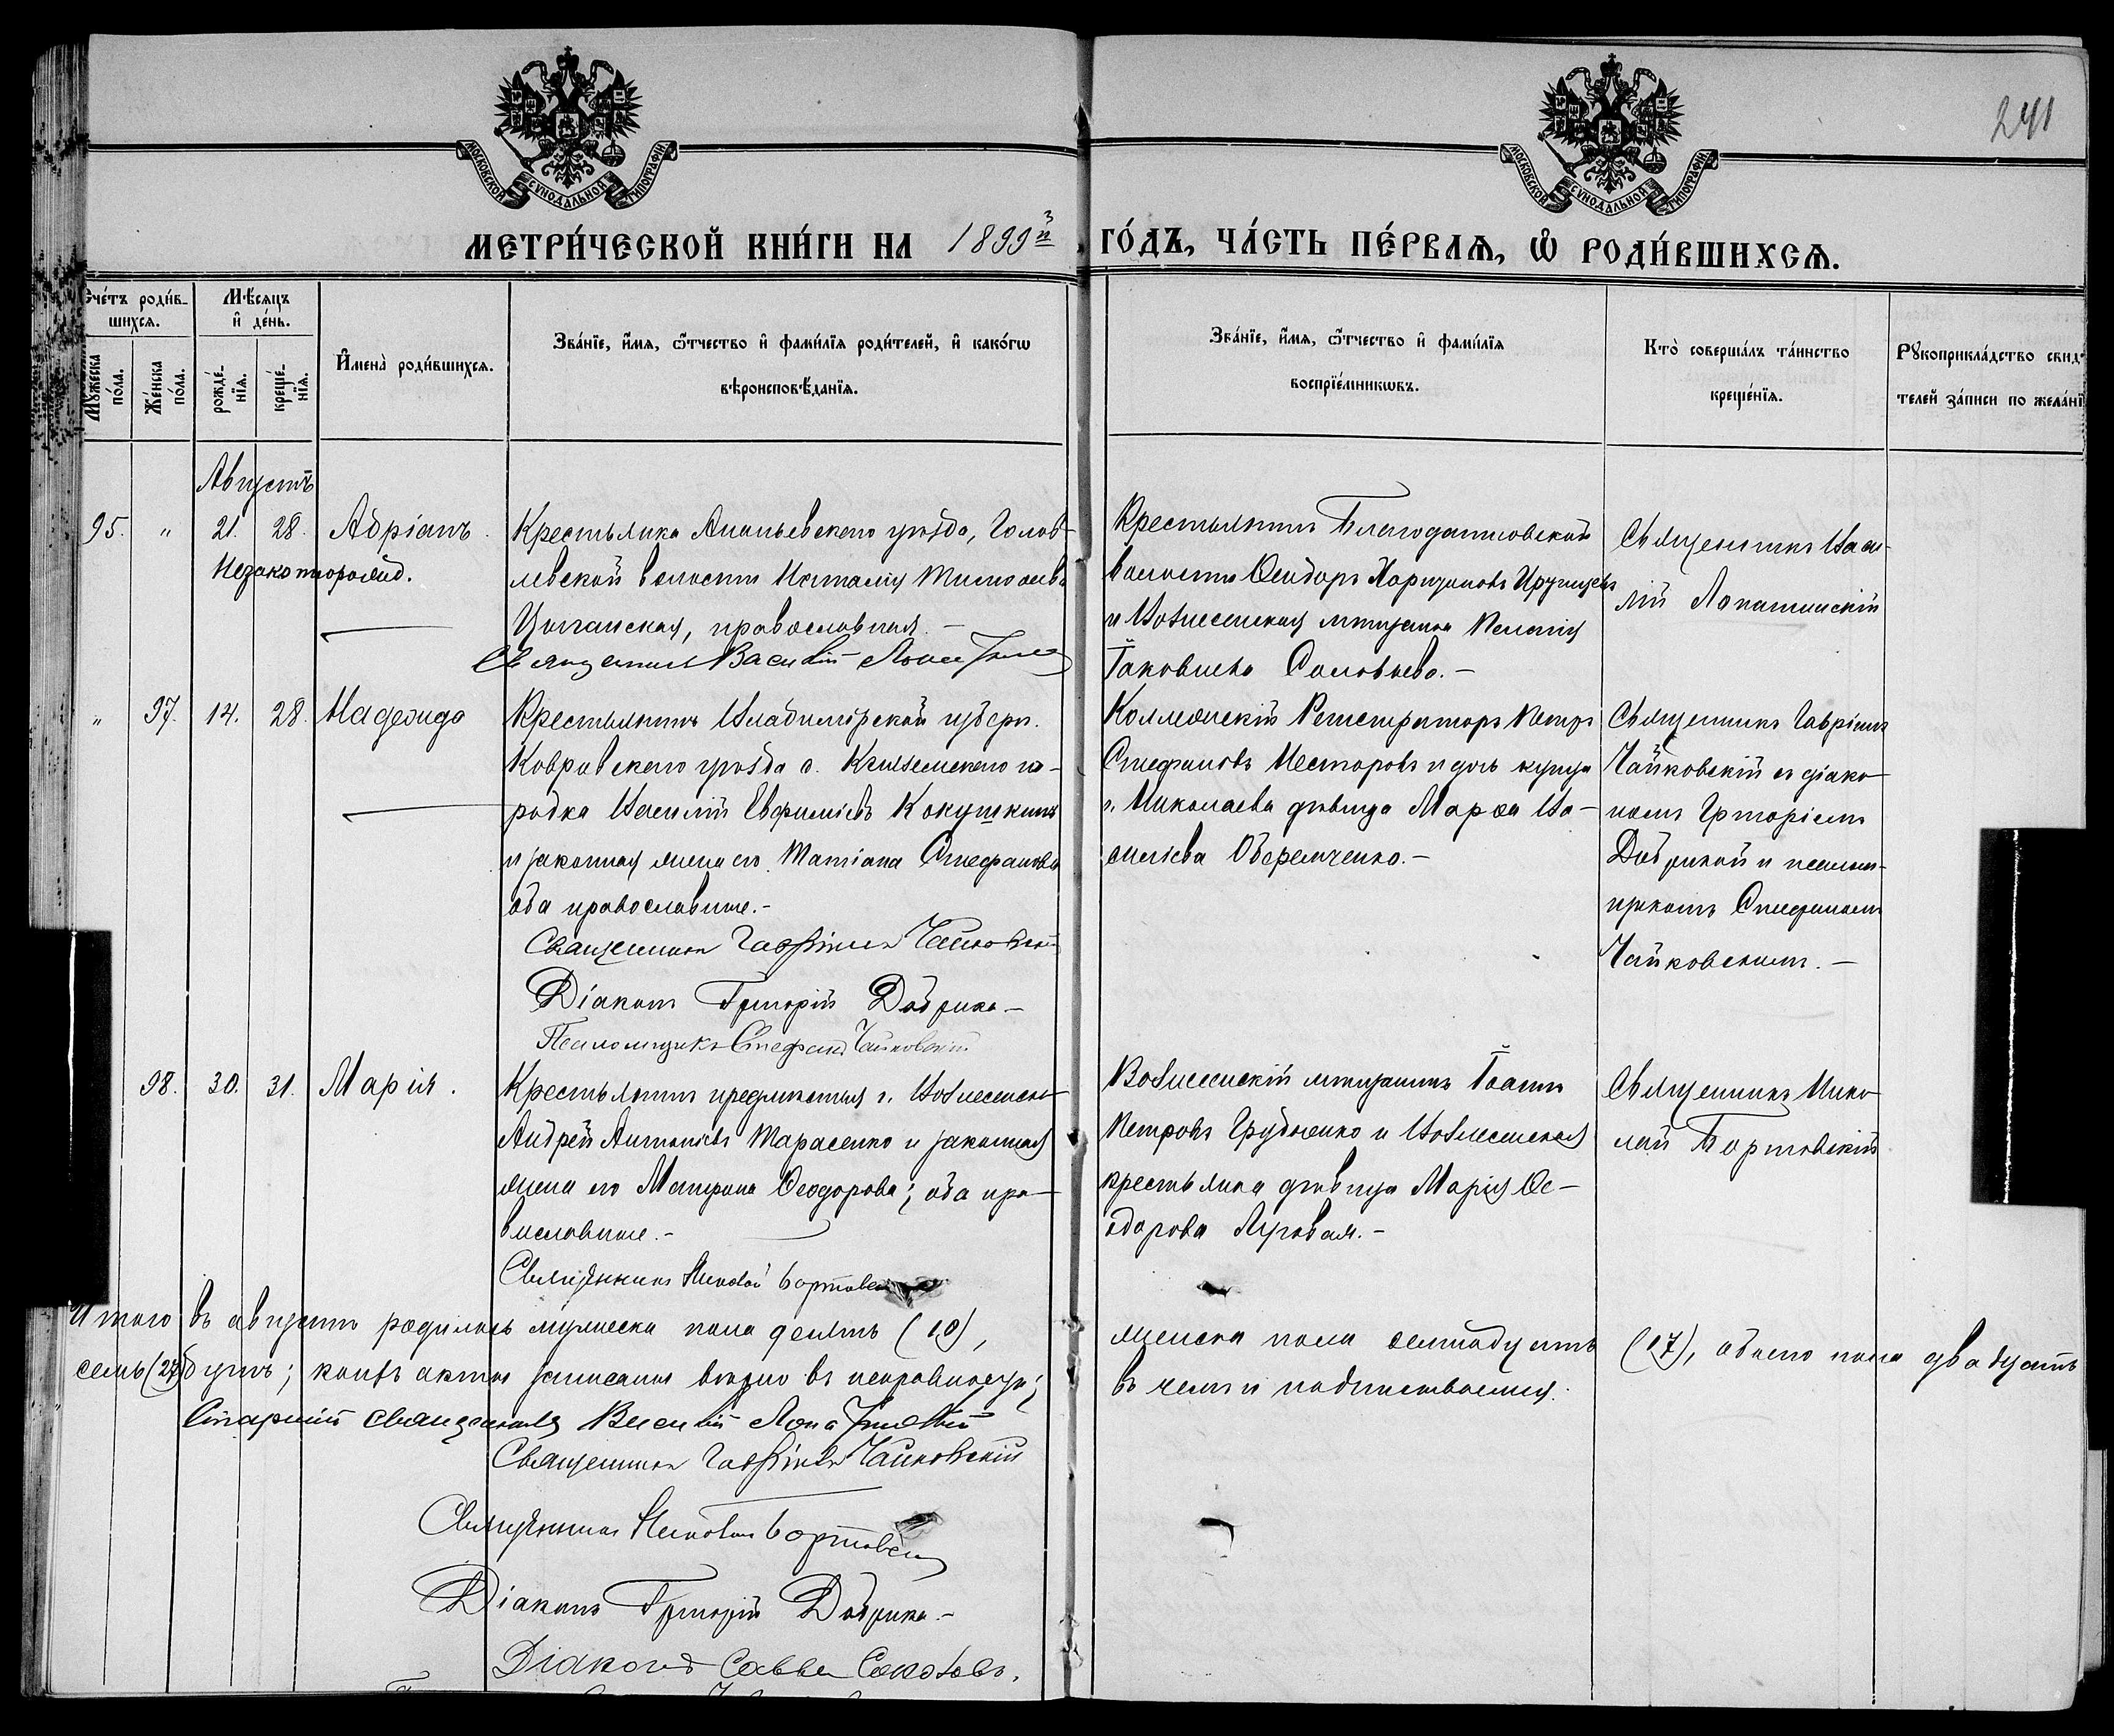 241
МОСКОВСКОЙ СУНОДАЛЬНОЙ ТИПОГРАФІИ
МОСКОВСКОЙ СУНОДАЛЬНОЙ ТИПОГРАФІИ
МЕТРИ́ЧЕСКОЙ КНИ́ГИ НА 1899й
ГО́ДЪ, ЧА́СТЬ ПЕ́РВАѦ, Ѡ҆ РОДИ́ВШИХСѦ.
Счетъ роди́вшихся.
Мѣсяцъ и де́нь.
Му́жеска по́ла.
Же́нска по́ла.
рожде́нїя.
креще́нїя.
Имена̀ роди́вшихся.
Зва́нїе, и҆́мя, ѻ҆́тчество и҆ фами́лїя роди́телей, и҆ како́гѡ
вѣроисповѣ́данїя.
Зва́нїе, и҆́мя, ѻ҆́тчество и҆ фами́лїя
воспрїе́мникѡвъ.
Кто̀ соверша́лъ та́инство
креще́нїя.
Рꙋкоприкла́дство свид
телей за́писи по жела́нї
Августъ
95. " 21. 28. Адріанъ.
Незаконорожд.
Крестьянка Ананьевскаго уѣзда, Голов-
левской волости Наталія Тимофеева
Цыганская, православная.-
Священникъ Василій
Крестьянинъ Благодатновской
волости Ѳеодоръ Харитоновъ
и Вознесенская мѣщанка Пелагія
Іаковлева Соловьева.-
Священникъ Васи-
лій Лопатинскій
" 97. 14. 28. Надежда
Крестьянинъ Владимірской губерн.
Ковровскаго уѣзда с. Клязьмскаго го-
родка Василій Евфиміевъ Кокушкинъ
и законная жена его Татіана Стефанова
оба православные.-
Священникъ Гавріилъ Чайковскій
Діаконъ Григорій Добрика-
Псаломщикъ Стефанъ Чайковскій
Коллежскій Регистраторъ Петръ
Стефановъ Несторовъ и дочь купца
г. Николаева дѣвица Марѳа Ва-
силіева Оберемченко.-
Священникъ Гавріилъ
Чайковскій съ діако-
номъ Григоріемъ
Добрикой и псалом-
щикомъ Стефаномъ
Чайковскимъ.-
98. 30. 31. Марія.
Крестьянинъ предмѣстья г. Вознесенска
Андрей Антоніевъ Тарасенко и законная
жена его Матрона Ѳеодорова; оба пра-
вославные.-
Священникъ Николай Бортовск
Вознесенскій мѣщанинъ Іоаннъ
Петровъ Грубченко и Вознесенская
крестьянка дѣвица Марія Ѳе-
одорова Луговая.-
Священникъ Нико-
лай Бортовскій
Итого въ августѣ родилось мужеска пола десять (10),
женска пола семнадцать (17), обоего пола двадцать
семь (27)
коихъ актъ записанъ вѣрно въ исправности;
въ чемъ и подписываемся.
Старшій священникъ Василій Лопатинскій
Священникъ Гавріилъ Чайковскій
Священникъ Николай Бортовск
Діаконъ Григорій Добрика-
Діаконъ Савва Соколовъ.